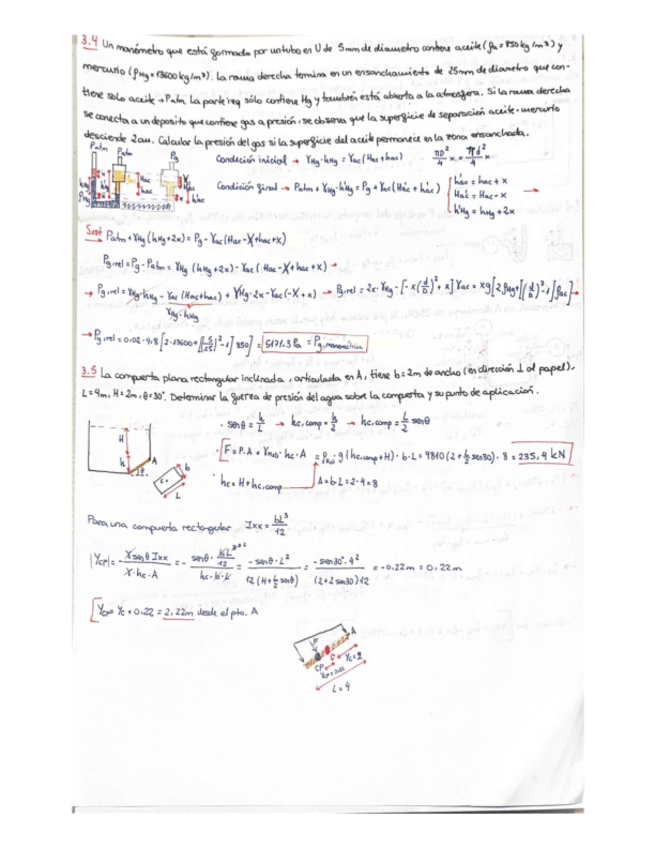 3.4 Un manómetro que está formado por un tubo en U de 5mm de diametro contiene aceite (ρa = 850 kg/m³) y
mercurio (ρHg = 13600 kg/m³). La rama derecha termina en un ensanchamiento de 25mm de diametro que con-
tiene solo aceite → Patm. La parte izq sólo contiene Hg y también está abierta a la atmosfera. Si la rama derecha
se conecta a un deposito que contiene gas a presión, se observa que la superficie de separación aceite-mercurio
desciende 2cm. Calcular la presión del gas si la superficie del aceite permanece en la zona ensanchada.
Patm Patm Pg
Condición inicial → γHg·hHg = γac (Hac + hac)
Condición final → Patm + γHg·h'Hg = Pg + γac (H'ac + h'ac)
h'ac = hac + x
H'ac = Hac - x
h'Hg = hHg + 2x
Sust Patm + γHg (hHg + 2x) = Pg - γac (Hac - X + hac + x)
Pg,rel = Pg - Patm = γHg (hHg + 2x) - γac (Hac - X + hac + x) →
→ Pg,rel = γHg·hHg - γac (Hac + hac) + γHg·2x - γac (-X + x) → Pg,rel = 2x·γHg - [-x(d/D)² + x] γac = xg[2ρHg + [(d/D)² - 1] ρac] →
γHg·hHg
→ Pg,rel = 0.02·9.8 [2·13600 + [(5/25)² - 1] 850] = 5171.3 Pa = Pg manométrica
3.5 La compuerta plana rectangular inclinada, articulada en A, tiene b = 2m de ancho (en dirección ⊥ al papel),
L = 4m, H = 2m, θ = 30°. Determinar la fuerza de presión del agua sobre la compuerta y su punto de aplicación.
· senθ = h/L → hc,comp = h/2 → hc,comp = L/2 senθ
H
h A
b
L
· F = P·A = γH2O · hc · A = ρH2O · g (hc,comp + H) · b · L = 9810 (2 + 4/2 sen30) · 8 = 235,4 kN
· hc = H + hc,comp A = b·L = 2·4 = 8
Para una compuerta rectangular Ixx = bL³/12
|Ycp| = γ senθ Ixx / γ·hc·A = - senθ · bL³/12 / hc·b·L = -senθ·L² / 12 (H + L/2 senθ) = -sen30°·4² / (2 + 2 sen30) 12 = -0.22m = 0.22m
Ycp = Yc + 0.22 = 2.22m desde el pto. A
A
F
CP C Yc = 2
Ycp = 2.22
L = 4